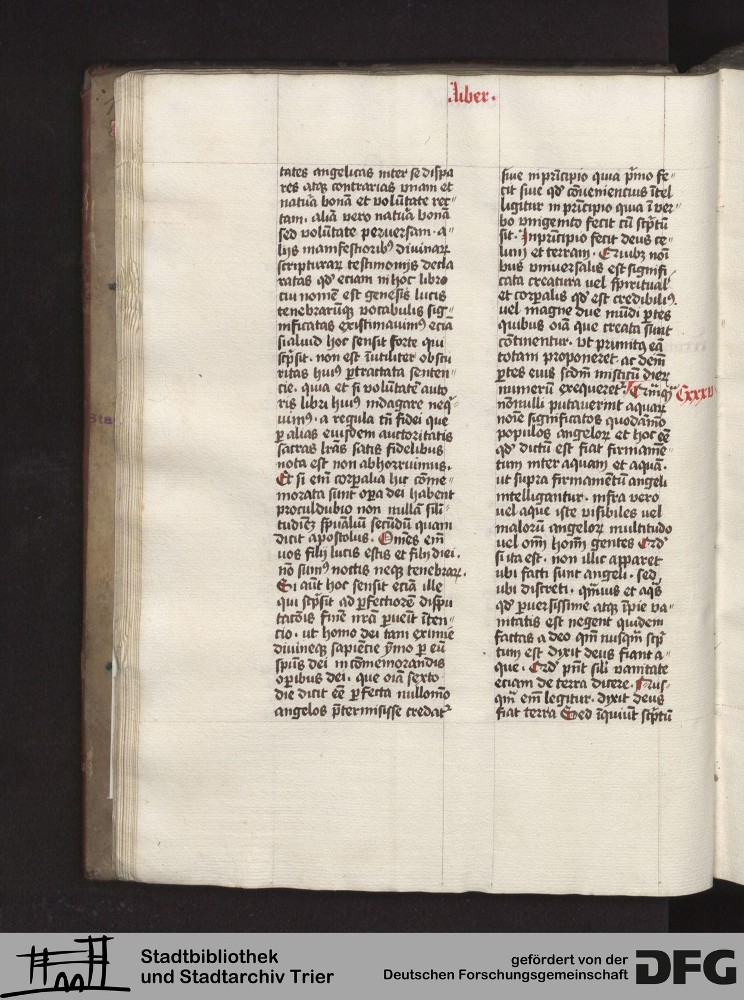 Liber.
tates angelicas inter se dispa
res atq; contrarias vnam et
natũa bonã et volũtate rec⸗
tam. aliã vero natũa bonã
sed volũtate peruersam. a⸗
lijs manifestioribꝰ diuinaꝝ
scripturaꝝ testimonijs decla
ratas qd̕ eciam in hoc libro
cui nomẽ est genesis lucis
tenebrarũq; vocabulis sig⸗
nificatas existimauimꝰ eciã
si aliud hoc sensit forte qui
scp̃sit. non est ĩutiliter obscu
ritas huiꝰ ꝑtractata senten⸗
cie. quia et si volũtatẽ auto
ris libri huiꝰ indagare neq̃
uimꝰ. a regula tñ fidei que
ꝑ alias eiusdem auctoritatis
sacras lrãs satis fidelibus
nota est non abhorruimus.
Et si em̃ corꝑalia hic cõme⸗
morata sunt oꝑa dei habent
proculdubio non nullã sili⸗
tudinẽ sp̃ualiũ secũdũ quam
dicit apostolus. Om̃es em̃
vos filij lucis estis et filij diei.
nõ sumꝰ noctis neq; tenebraꝝ.
Si aũt hoc sensit eciã ille
qui scp̃sit ad ꝑfectiorẽ dispu
tacõis finẽ nrã ꝑueit ĩten⸗
cio. vt homo dei tam eximie
diuineq; sapiencie ỹmo ꝑ eũ
spiũs dei in cõmemorandis
oꝑibus dei. que oĩa sexto
die dicit eẽ ꝑfecta nullomõ
angelos p̃termisisse credat᷑
siue in prĩcipio quia p̃mo fe⸗
cit siue qd̕ cõuenientius ĩtel
ligitur in prĩcipio quia ĩ ver⸗
bo vnigenito fecit cũ scp̃tũ
sit. Inprĩcipio fecit deus ce⸗
lum et terram. Quibꝫ noĩ
bus vniuersalis est signifi⸗
cata creatura uel spiritual̕
et corꝑalis qd̕ est credibiliꝰ.
vel magne due mũdi ꝑtes
quibus oĩa que creata sunt
cõtinentur. vt primitꝰ eã
totam proponeret. ac deiñ
ꝑtes eius scdm̃ misticũ dieꝝ
numerũ exequeret᷑. Qm̃q̃ᷓ Cxxxv
nõnulli putauerint aquaꝝ
noĩe significatos quodãmo
populos angeloꝝ et hoc eẽ
qd̕ dictũ est fiat firmamẽ⸗
tum inter aquam et aquã.
vt supra firmamẽtũ angeli
intelligantur. infra vero
vel aque iste visibiles vel
maloru angeloꝝ multitudo
vel oĩm hoĩm gentes Qd̕
si ita est. non illic apparet
vbi facti sunt angeli. sed
vbi discreti. qm̃uis et aq̃s
qd̕ ꝑuersissime atq; ĩpie va⸗
nitatis est negent quidem
factas a deo qm̃ nusqm̃ scp̃
tum est dyxit deus fiant a⸗
que. Qd̕ pñt sili vanitate
eciam de terra dicere. Nus⸗
qm̃ em̃ legitur. dyxit deus
fiat terra Sed ĩquiũt scp̃tũ
Stadtbibliothek
und Stadtarchiv Trier
gefördert von der
Deutschen Forschungsgemeinschaft
DFG